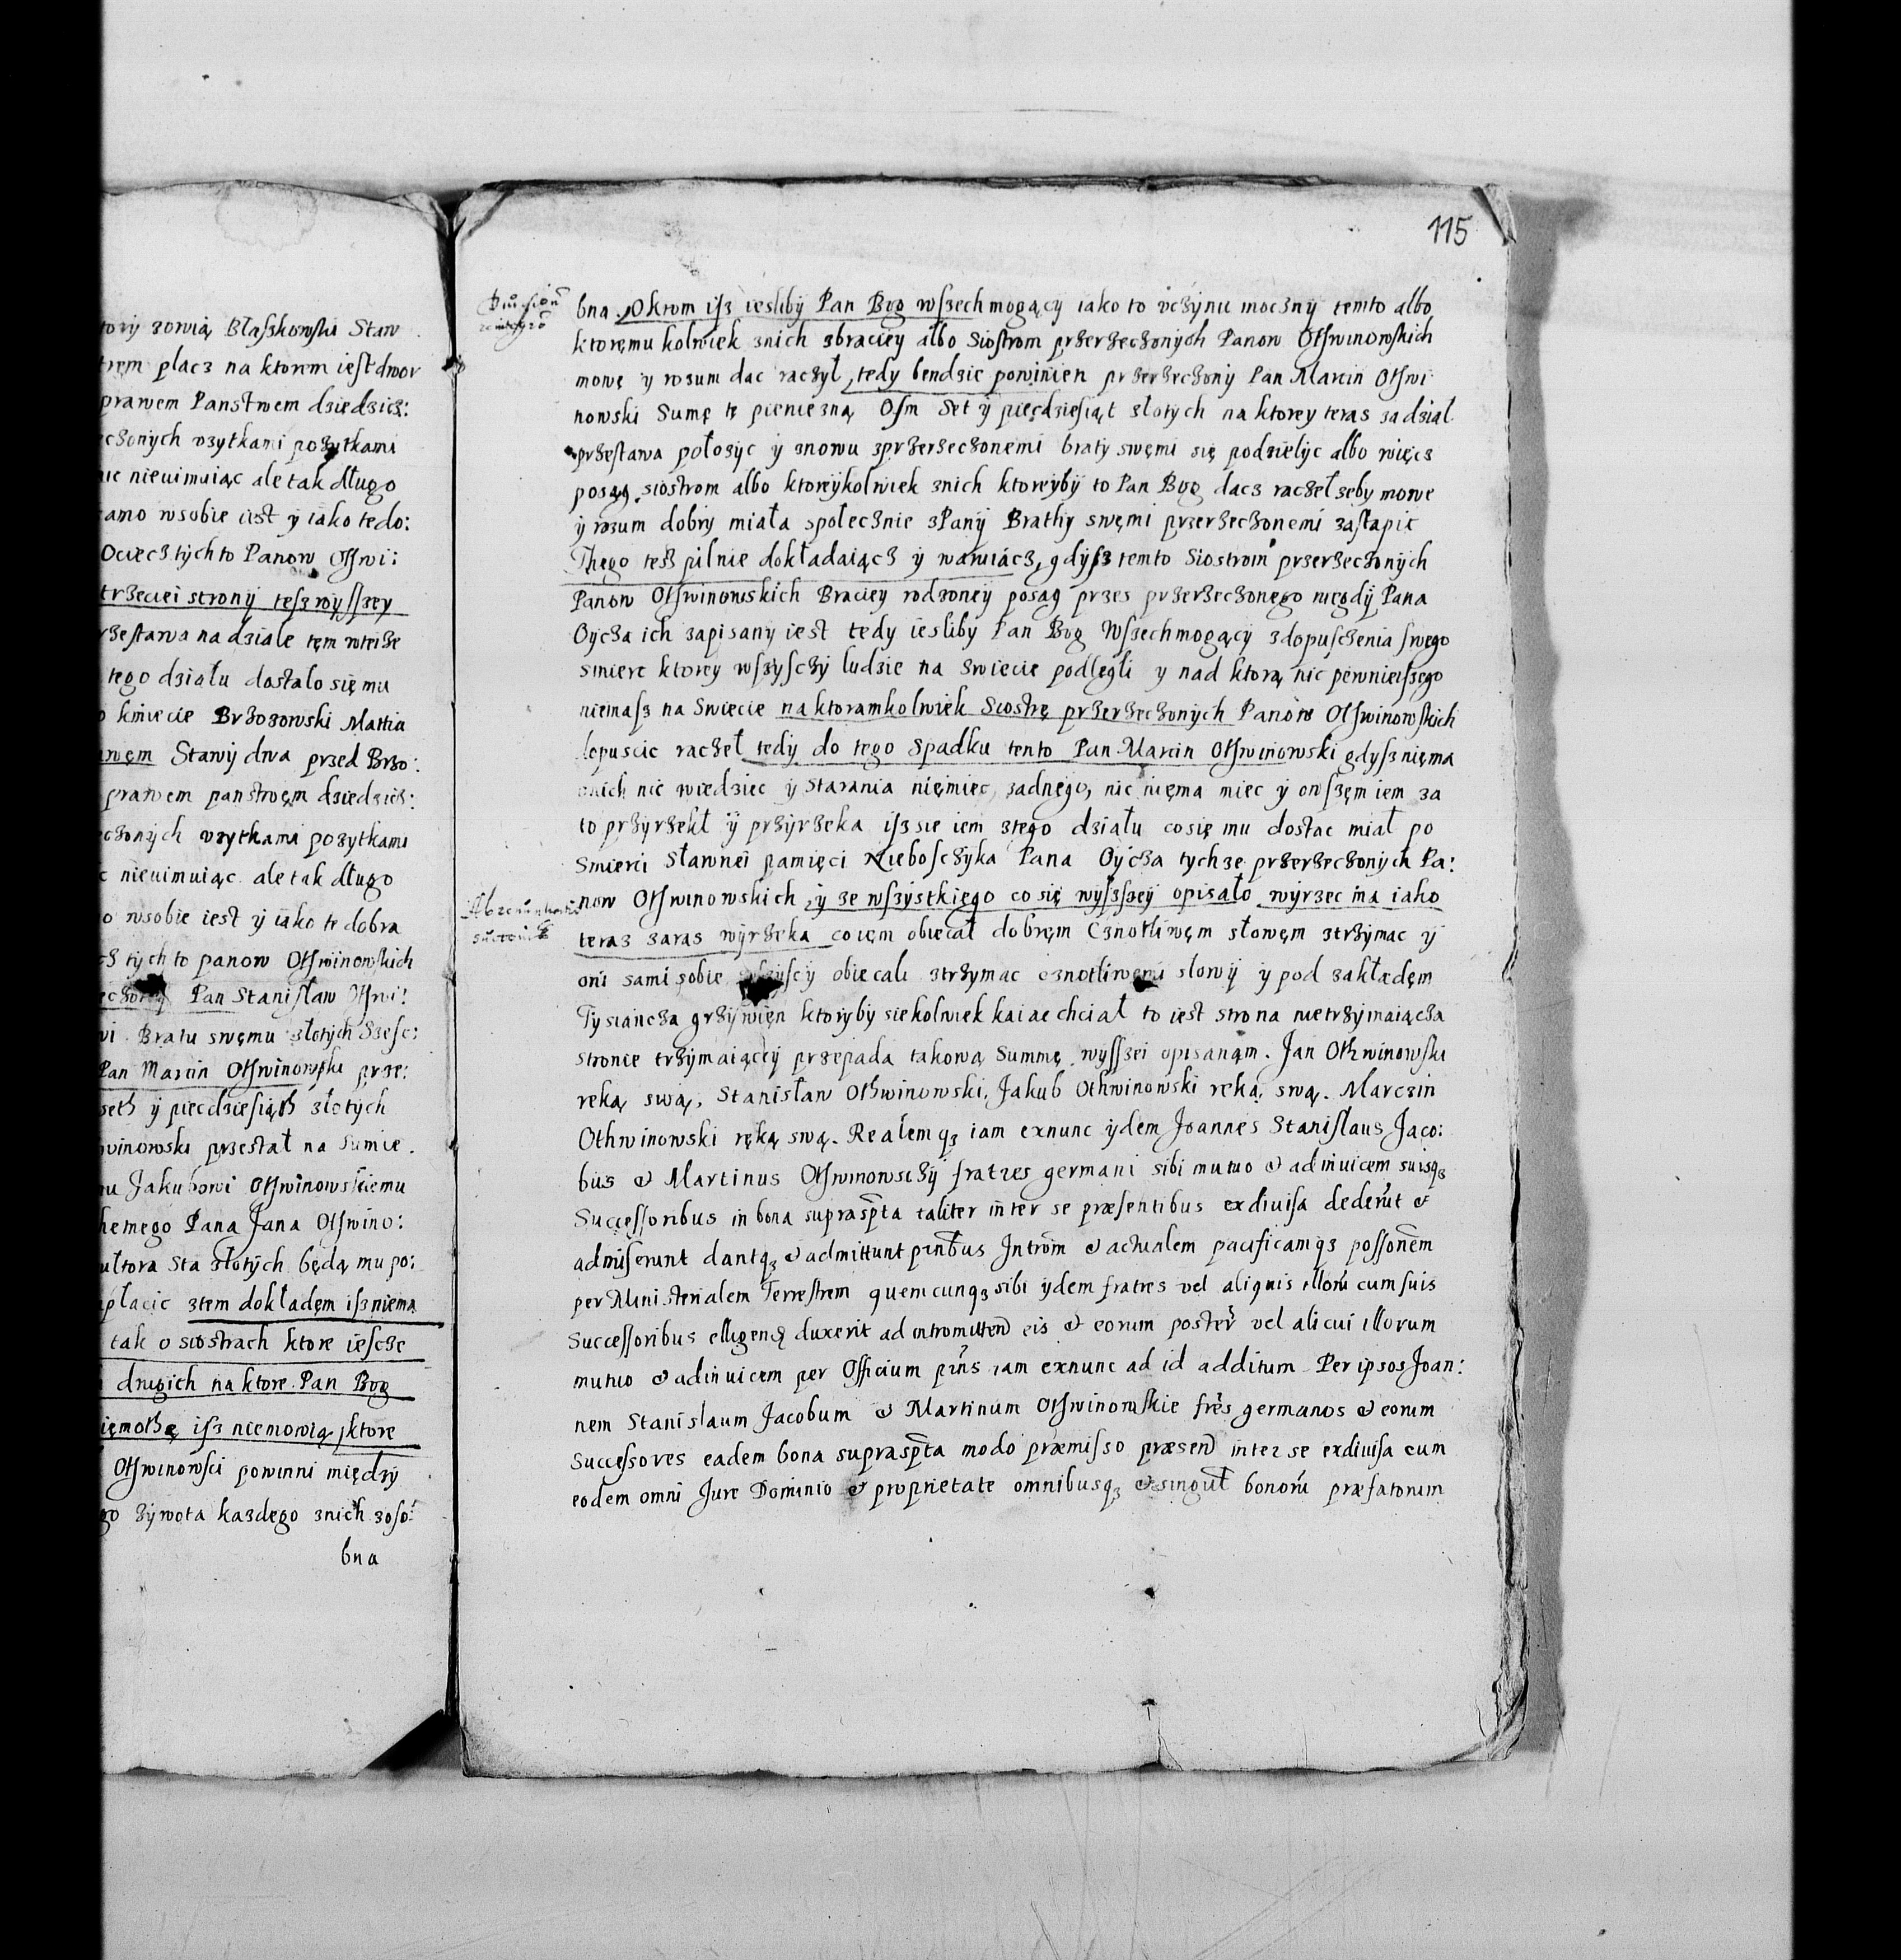 tory zowią Błaszkowski Staw
trem placz na ktorem iest dwor
prawem Panstwem dziedzicz:
czonych vzytkami pozytkami
nic nieuimuiąc ale tak długo
samo wsobie iest y iako tedo:
Ociecz tych to Panow Othwi:
trzeciei strony tesz wysszey
rzestawa na dziale tem wteize
tego działu dostało się mu
kmiecie Brzozowski Mattia
awem Stawy dwa przed Brzo:
prawem panstwem dziedzicz:
czonych vzytkami pozytkami
c nieuimuiąc ale tak długo
o wsobie iest y iako te dobra
cz tych to panow Othwinowskich
Pan Stanisław Othwi:
wi Bratu swęmu złotych Szesc:
Pan Marcin Othwinowski prze:
seth y piecdziesiąth złotych
winowski przestał na Sumie.
nu Jakubowi Othwinowskiemu
hemego Pana Jana Othwino:
ułtora sta złotych będą mu po:
apłacic ztem dokładęm isz niema
tak o siostrach ktore iescze
drugich na ktore Pan Bog
isz niemowią, ktore
Othwinowsci powinni między
go zywota kazdego znich zoso:
bna
115
bna. Okrom isz iesliby Pan Bog wszechmogący iako to vczynic moczny temto albo
kto‎remu kolwiek znich zbraciey albo Siostrom przerzeczonych Panow Othwinowskich
mowę y rozum dac raczył, tedy bendzie powinien przerzeczony Pan Marcin Othwi
nowski Sumę tę pieniezną Osm Set y pięcdziesiąt złotych na ktorey teras za dział
przestawa połozyc y znowu zprzerzeczonemi braty swęmi się podzielyc albo więcz
posag siostrom albo ktoreykolwiek znich ktoreyby to Pan Bog dacz raczeł zeby mowe
y rozum dobry miała społecznie zPany Brathy swęmi przerzeczonemi zastąpic
Thego tesz pilnie dokładaiącz y waruiącz, gdysz temto Siostrom przerzeczonych
Panow Othwinowskich Braciey rodzoney posag przes przerzeczonego niegdy Pana
Oycza ich zapisany iest tedy iesliby Pan Bog Wszechmogący zdopusczenia swego
smierc ktorey wszysczy ludzie na swiecie podlęgli y nad ktorą nic pewnieiszego
niemasz na Swiecie na ktoramkolwiek Siostrę przerzeczonych Panow Othwinowskich
dopuscic raczeł tedy do tego Spadku tento Pan Marcin Othwinowski gdysz nięma
onich nic wiedziec y Starania nięmiec zadnego, nic nięma miec y owszęm iem za
to przyrzekł y przyrzeka isz sie iem ztego działu co się mu dostac miał po
Smierci Sławnei pamięci Nieboszczyka Pana Oycza tychze przerzeczonych Pa:
now Othwinowskich y ze wszystkiego co się wyszszey opisało wyrzec ma iako
teraz zaras wyrzeka co iem obiecał dobręm Cznotliwęm słowęm ztrzymac y
oni sami sobie obiecali ztrzymac cznotliwemi słowy y pod zakłædęm
Tysiancza grzywięn ktoryby siekolwiek kaiac chciał to iest strona nietrzymaiącza
stronie trzymaiącey przepada takową Summę wysszei opisanąm. Jan Othwinowski
ręką swą, Stanisław Othwinowski, Jakub Othwinowski ręką swą. Marczin
Othwinowski ręką swą. Realemqз iam exnunc ydem Joannes Stanislaus Jaco:
bus & Martinus Othwinowsczy fratres germani sibi mutuo & adinuicem suisqз
Successoribus in bona supraspta taliter inter se præsentibus exdiuisa dederut &
admiserunt dantqз & admittunt pntbus Introm & actualem pacificamqз possonem
per Ministerialem Terrestrem quemcunqз sibi ydem fratres vel aliquis illoru cum suis
Successoribus elligend duxerit ad intromitten eis & eorum poster vel alicui illorum
mutuo & adinuicem per Officium pns iam exnunc ad id additum Per ipsos Joan:
nem Stanislaum Jacobum & Martinum Othwinowskie fres germanos & eorum
Successores eadem bona supraspta modo præmisso præsen inter se exdiuisa cum
eodem omni Jure Dominio & proprietate omnibusqз & singul bonoru præfatorum